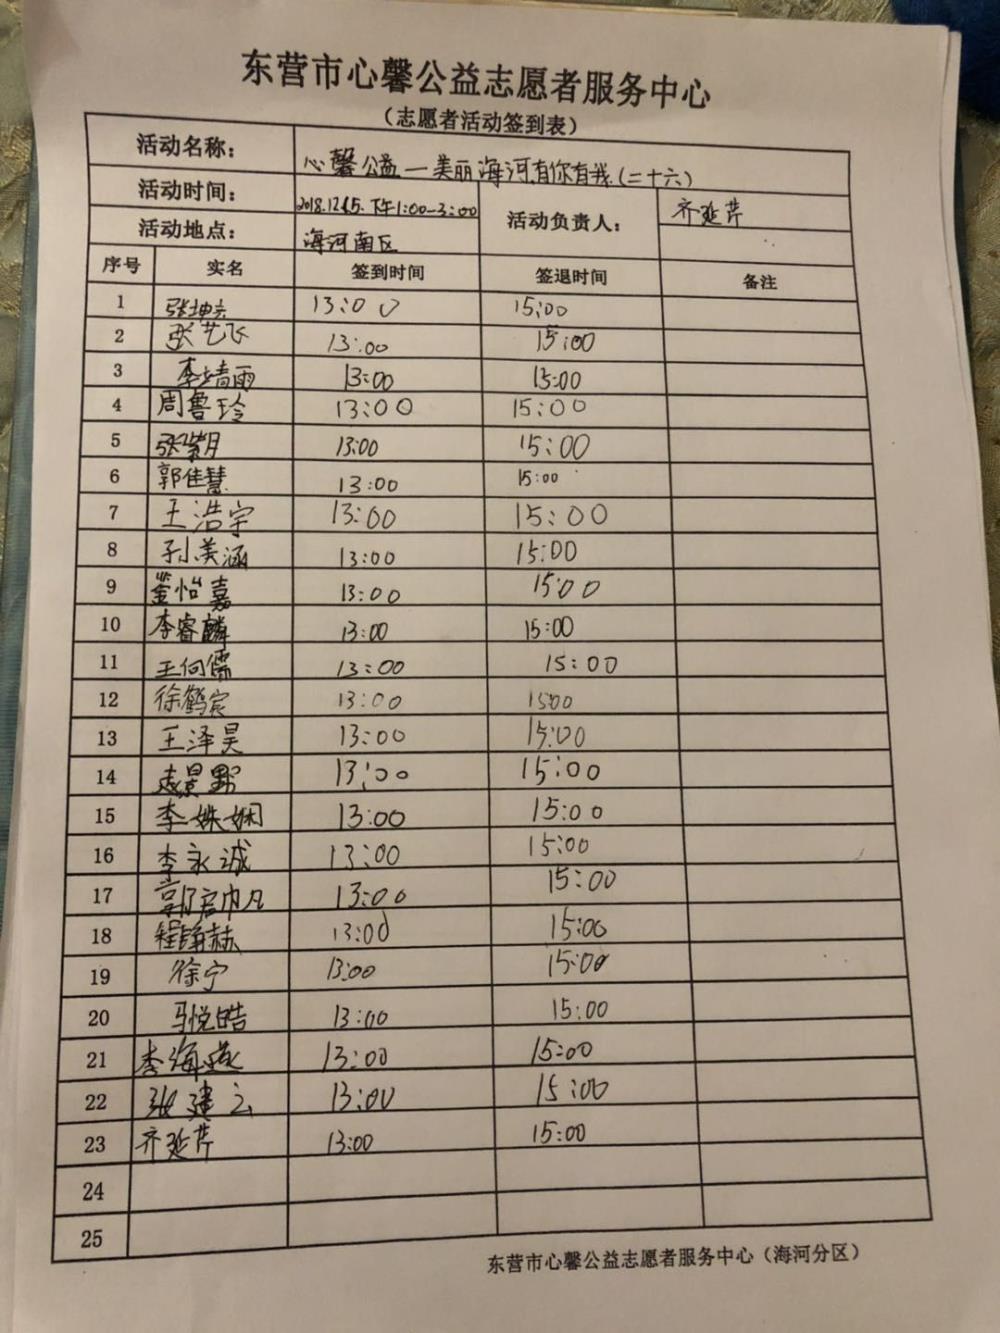 东营市心馨公益志愿者服务中心
（志愿者活动签到表）
活动名称： 心馨公益—美丽海河有你有我(二十六)
活动时间： 2018.12.15.下午1:00-3:00 活动负责人： 齐延芹
活动地点： 海河南区
序号 实名 签到时间 签退时间 备注
1 张坤 13:00 15:00
2 张艺飞 13:00 15:00
3 李靖雨 13:00 15:00
4 周鲁玲 13:00 15:00
5 张紫月 13:00 15:00
6 郭佳慧 13:00 15:00
7 王浩宇 13:00 15:00
8 孙美涵 13:00 15:00
9 董怡嘉 13:00 15:00
10 李睿麟 13:00 15:00
11 王向儒 13:00 15:00
12 徐鹤宾 13:00 1500
13 王泽昊 13:00 15:00
14 景野 13:00 15:00
15 李姝娴 13:00 15:00
16 李永诚 13:00 15:00
17 郭 凡 13:00 15:00
18 程 赫 13:00 15:00
19 徐宁 13:00 15:00
20 马悦皓 13:00 15:00
21 李海燕 13:00 15:00
22 张建云 13:00 15:00
23 齐延芹 13:00 15:00
24
25
东营市心馨公益志愿者服务中心（海河分区）